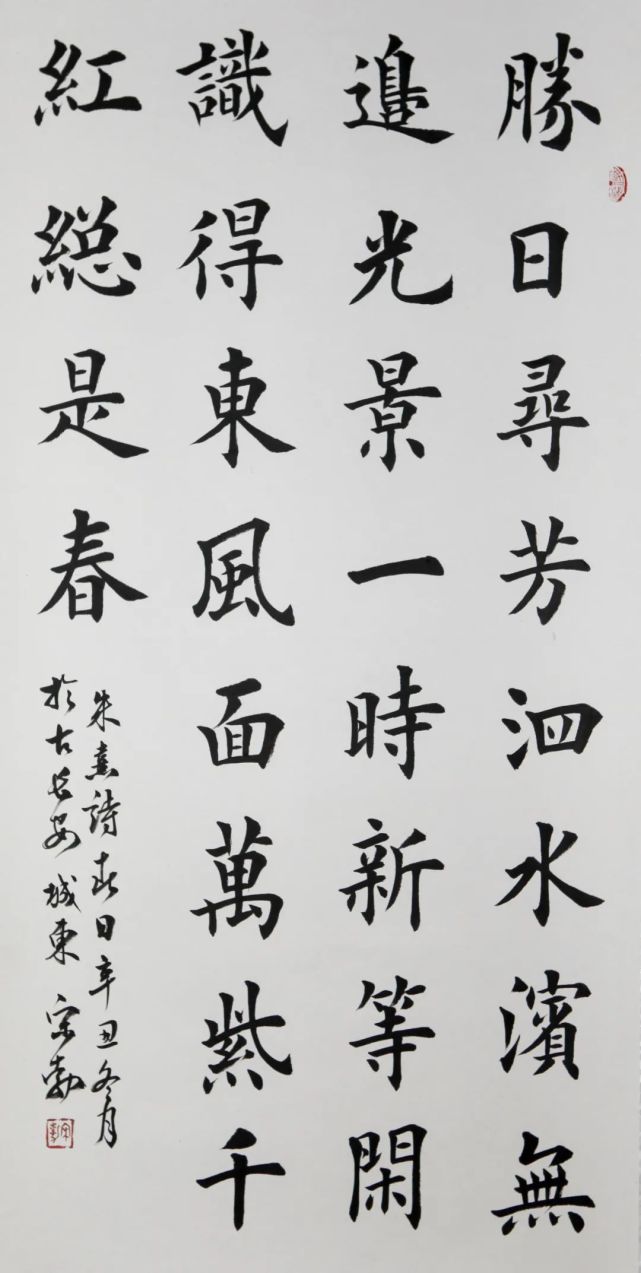 勝日尋芳泗水濱無
邉光景一時新等閑
識得東風面萬紫千
紅緫是春
朱熹詩春日辛丑冬月
於古長安城東宋勃